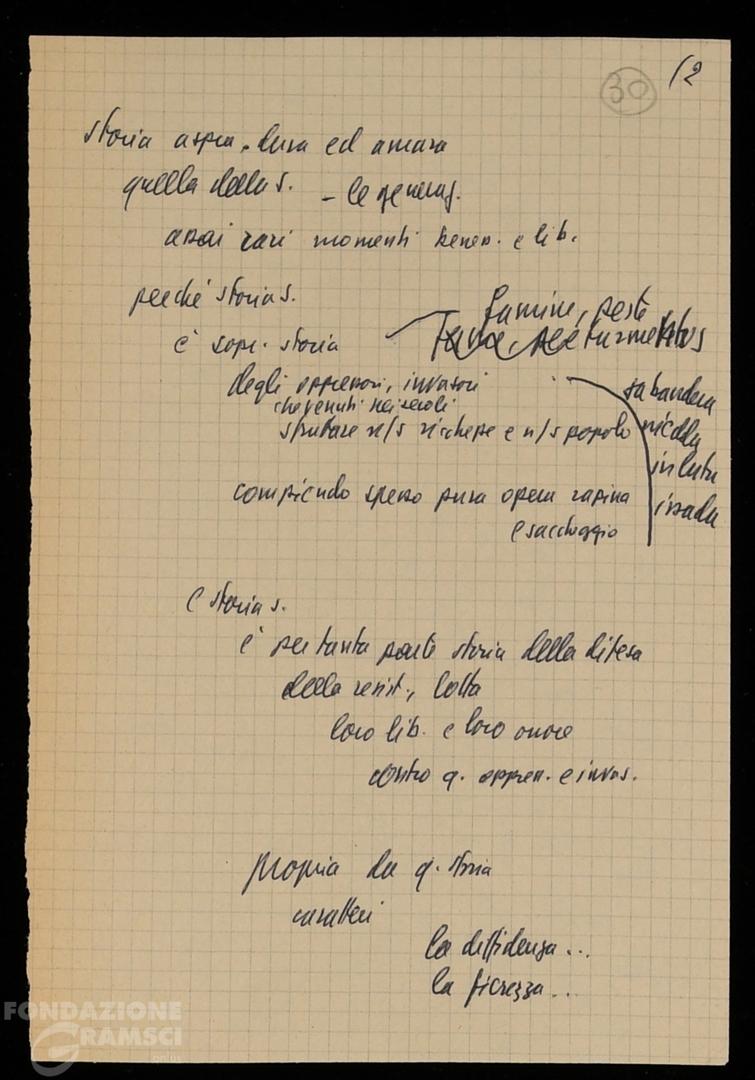 30
12
storia aspra, dura ed amara
quella della s. - le generaz.
assai rari momenti beness. e lib.
perché storia s.
è sopr. storia
famine, peste
turmentos
degli oppressori, invasori
che venuti nei secoli
sfruttare n/s ricchezze e n/s popolo
sa bandera
niedda
in
compiendo spesso pura opera rapina
e saccheggio
e storia s.
è per tanta parte storia della difesa
della resist., lotta
loro lib. e loro onore
contro q. oppress. e invas.
Proprio da q. storia
caratteri
la diffidenza...
la fierezza...
FONDAZIONE
GRAMSCI
onlus